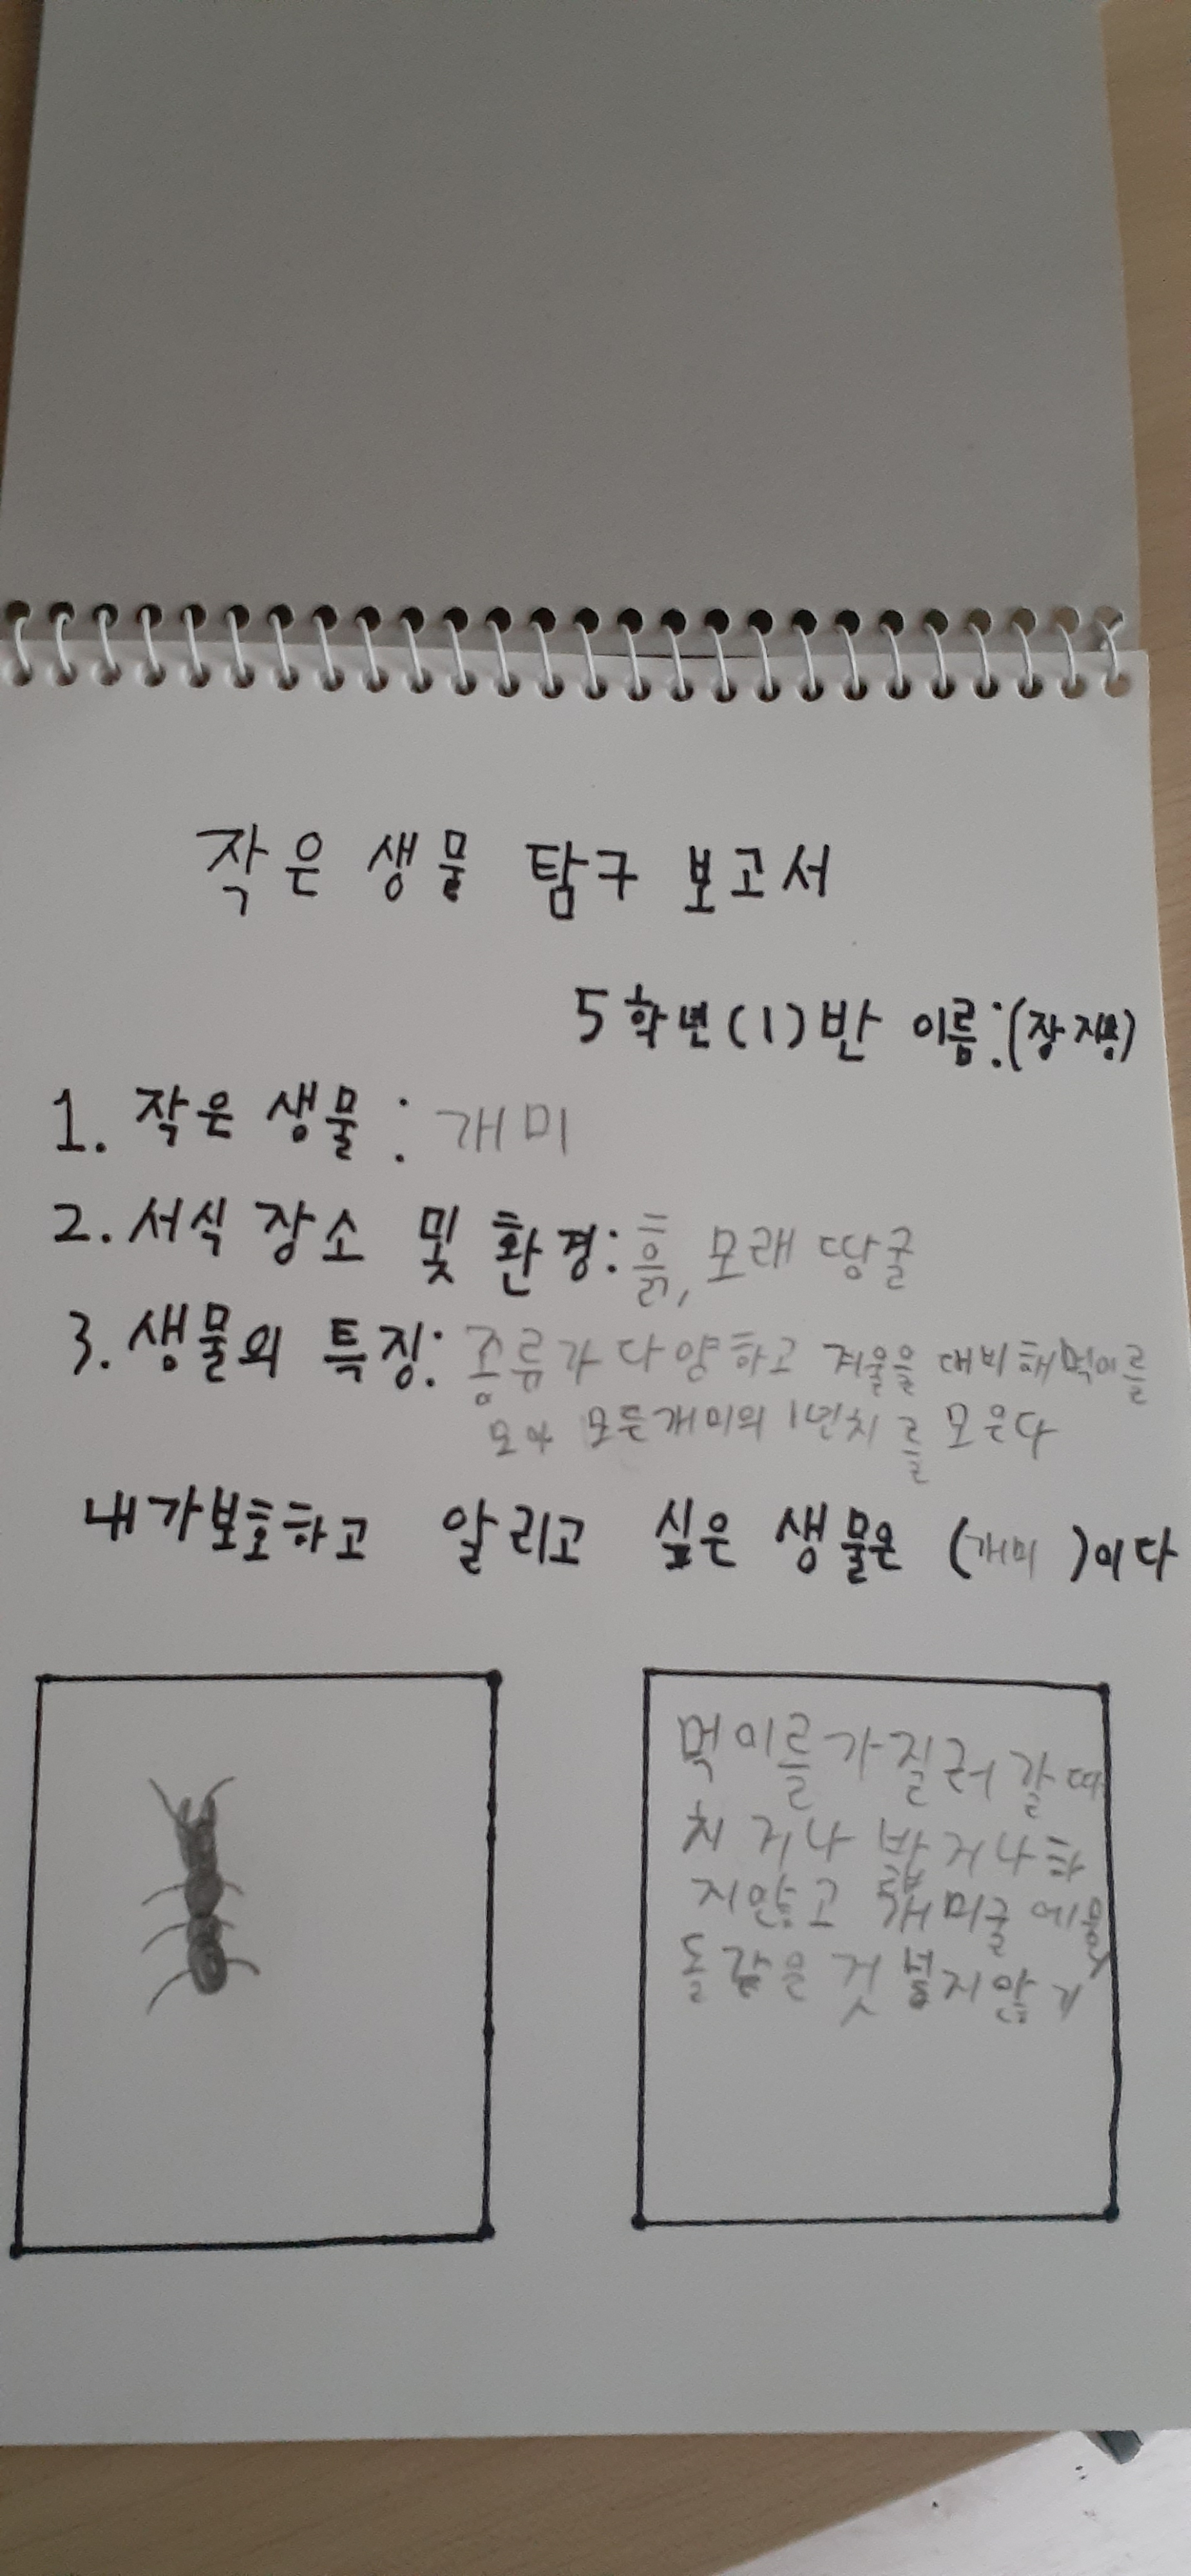 작은 생물 탐구 보고서
5학년(1)반 이름:(장
1. 작은 생물: 개미
2. 서식 장소 및 환경: 흙, 모래 땅굴
3. 생물의 특징: 종류가 다양하고 겨울을 대비해 먹이를
모아 모든개미의 1년치를 모은다
내가보호하고 알리고 싶은 생물은 (개미 )이다
먹이를 가질러 갈때
치거나 밥거나하
지않고 개미굴에물
돌같은 것 넣지않기